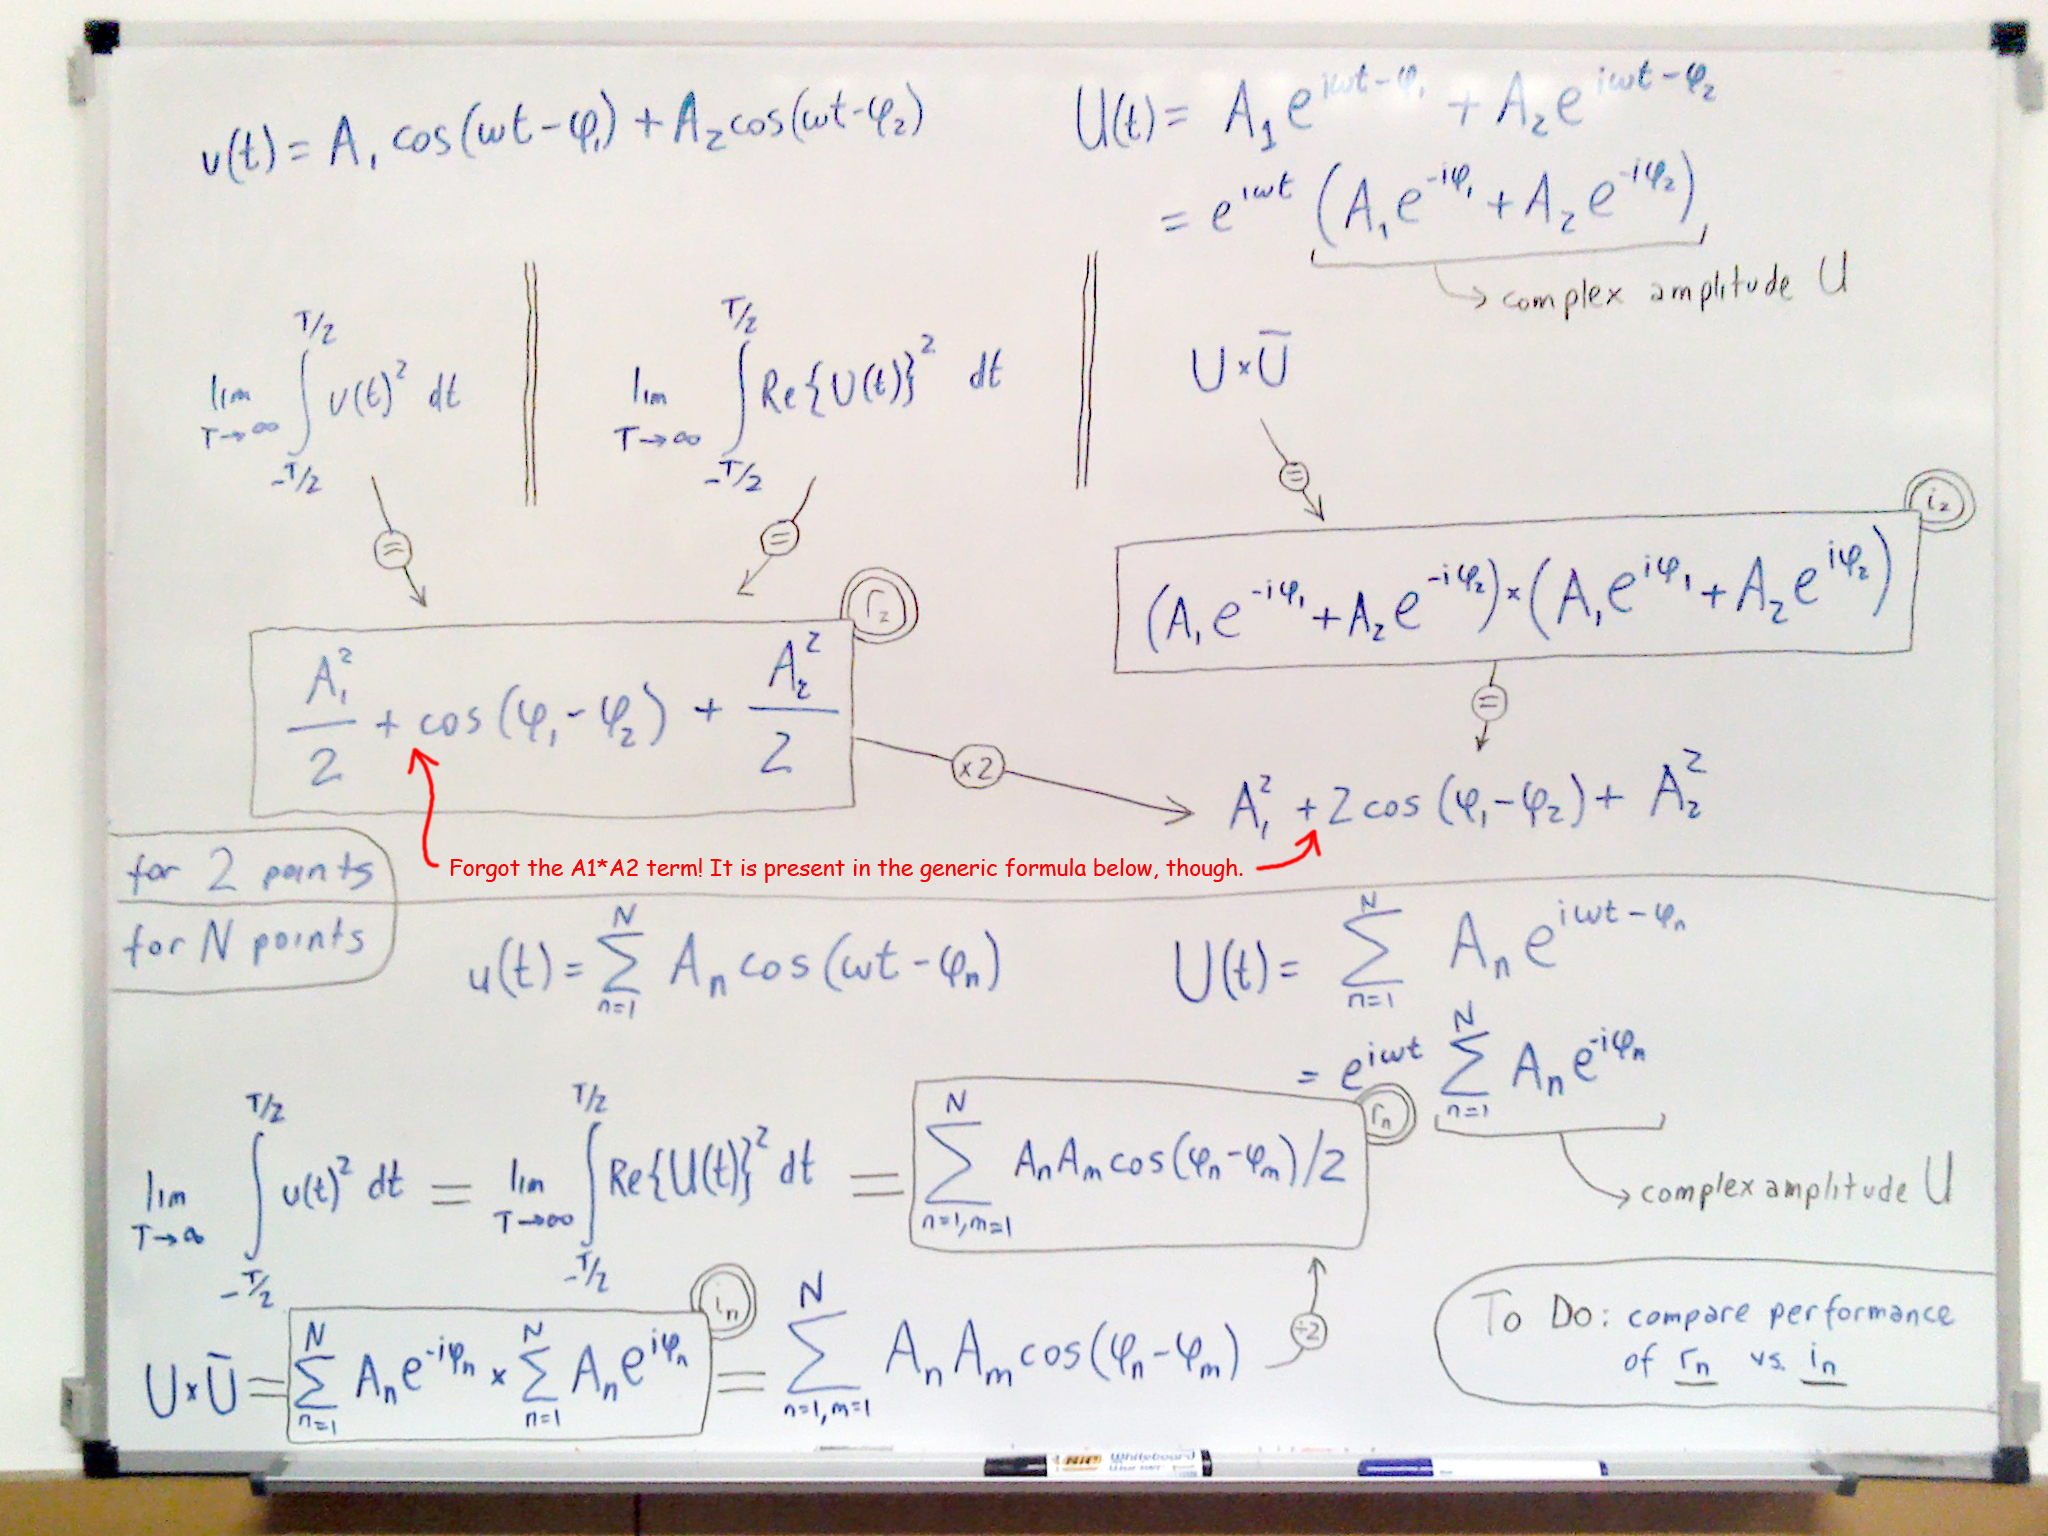 v(t) = A₁ cos(ωt-φ₁) + A₂ cos(ωt-φ₂)
U(t) = A₁ e^{iωt-φ₁} + A₂ e^{iωt-φ₂}
= e^{iωt} (A₁ e^{-iφ₁} + A₂ e^{-iφ₂})
complex amplitude U
lim T→∞ ∫_{-T/2}^{T/2} v(t)² dt
lim T→∞ ∫_{-T/2}^{T/2} Re{U(t)}² dt
U × Ū
=
=
=
i₂
(A₁ e^{-iφ₁} + A₂ e^{-iφ₂}) × (A₁ e^{iφ₁} + A₂ e^{iφ₂})
r₂
A₁²/2 + cos(φ₁-φ₂) + A₂²/2
=
×2
A₁² + 2 cos(φ₁-φ₂) + A₂²
Forgot the A1*A2 term! It is present in the generic formula below, though.
for 2 points
for N points
u(t) = ∑_{n=1}^{N} Aₙ cos(ωt-φₙ)
U(t) = ∑_{n=1}^{N} Aₙ e^{iωt-φₙ}
= e^{iωt} ∑_{n=1}^{N} Aₙ e^{-iφₙ}
complex amplitude U
lim T→∞ ∫_{-T/2}^{T/2} u(t)² dt = lim T→∞ ∫_{-T/2}^{T/2} Re{U(t)}² dt = ∑_{n=1,m=1}^{N} Aₙ Aₘ cos(φₙ-φₘ)/2
rₙ
iₙ
÷2
U × Ū = ∑_{n=1}^{N} Aₙ e^{-iφₙ} × ∑_{n=1}^{N} Aₙ e^{iφₙ} = ∑_{n=1,m=1}^{N} Aₙ Aₘ cos(φₙ-φₘ)
To Do: compare performance
of rₙ vs. iₙ
BIC Whiteboard Marker